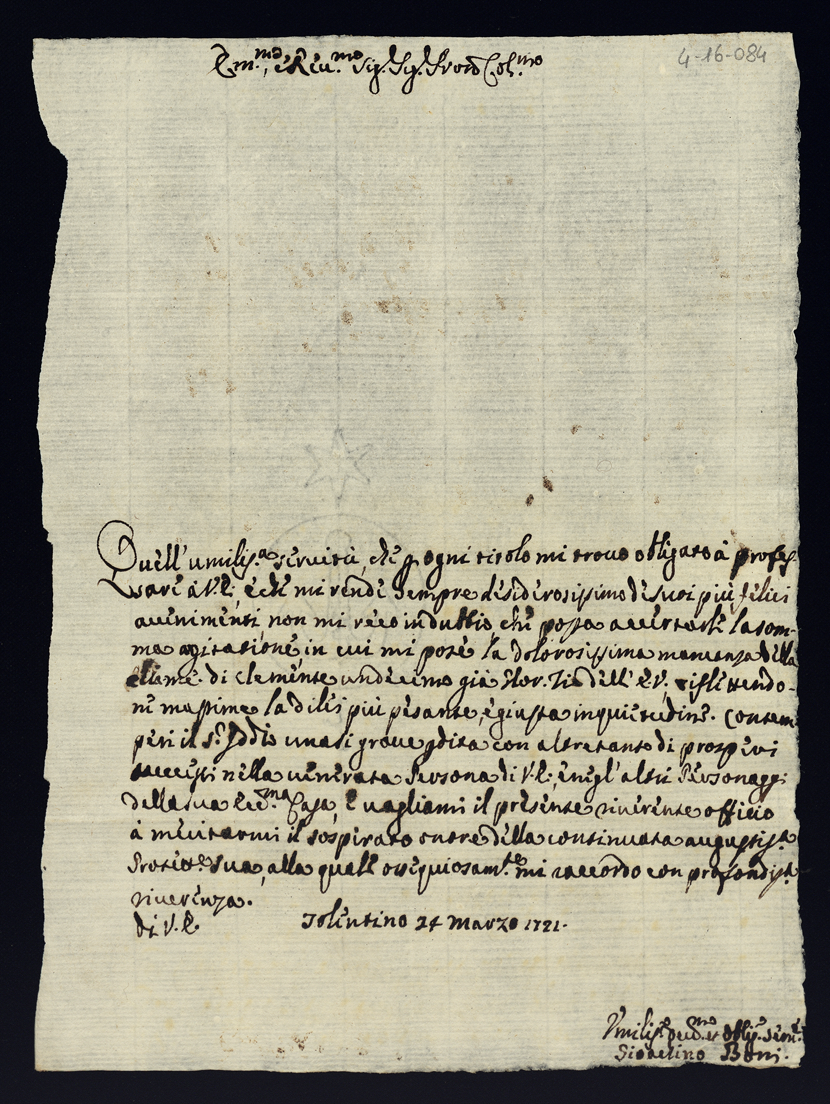 Em.mo, e Reu.mo Sig. Sig. Pron Col.mo
4-16-084
Quell'umilis.a seruitù, che p ogni titolo mi trouo obligato à profes-
sare à V.E. e che mi rende sempre desiderosissimo de suoi più felici
auuenimenti non mi reca in dubbio che possa accertarle la som-
ma agitatione, in cui mi pose la dolorosissima mancanza della
di Clemente undecimo già Zio dell' E.V., riflettendo-
ne massime la di lei più pesante, e giusta inquietudine. Contem-
peri il S.r Iddio una si graue pdita con altretanto di prosperi
successi nella uenerata Persona di V.E., e negl'altri Personaggi
della sua Ecc.ma Casa, e uagliami il presente riuerente officio
à meritarmi il sospirato onore della continuata augustis.a
Protett.e sua, alla quale ossequiosam.te mi raccordo con profondis.a
riuerenza.
di V.E. Tolentino 24 Marzo 1721.
Umilis.o Deu.mo et oblig. seru.e
Boni.